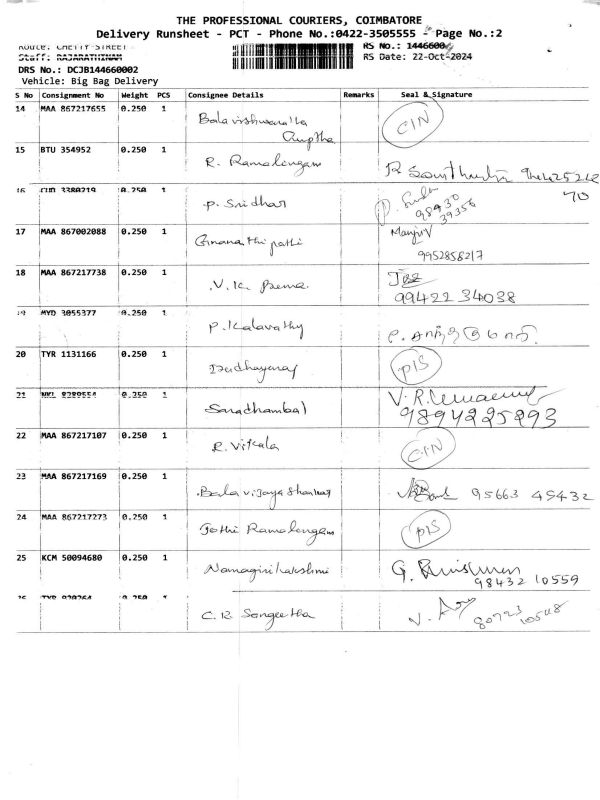 THE PROFESSIONAL COURIERS, COIMBATORE
Delivery Runsheet - PCT - Phone No.:0422-3505555 - Page No.:2
Route: CHETTY STREET
RS No.: 1446600
Staff: RAJARATHINAM
RS Date: 22-Oct-2024
DRS No.: DCJB144660002
Vehicle: Big Bag Delivery
S No Consignment No Weight PCS Consignee Details Remarks Seal & Signature
14 MAA 867217655 0.250 1 Bala vishwanatha CIN
Guptha
15 BTU 354952 0.250 1 R. Ramalingam R
70
16 3380219 0.250 P. Sridhar 98430
39356
17 MAA 867002088 0.250 1 Gnanathipathi Manju V
9952858217
18 MAA 867217738 0.250 1 V.K. Prema
99422 34038
19 MYD 3055377 0.250 1 P. Kalavathy
20 TYR 1131166 0.250 1 PIS
21 NKL 8289554 0.250 1 Saradhambal V.R.
9894225293
22 MAA 867217107 0.250 1 R. Vikala CIN
23 MAA 867217169 0.250 1 Bala vijaya shankar 95663 45432
24 MAA 867217273 0.250 1 Jothi Ramalingam PIS
25 KCM 50094680 0.250 1 Namagirilakshmi G.
98432 10559
26 TYR 0.250 1 C.R. Sangeetha V.
80723
10548